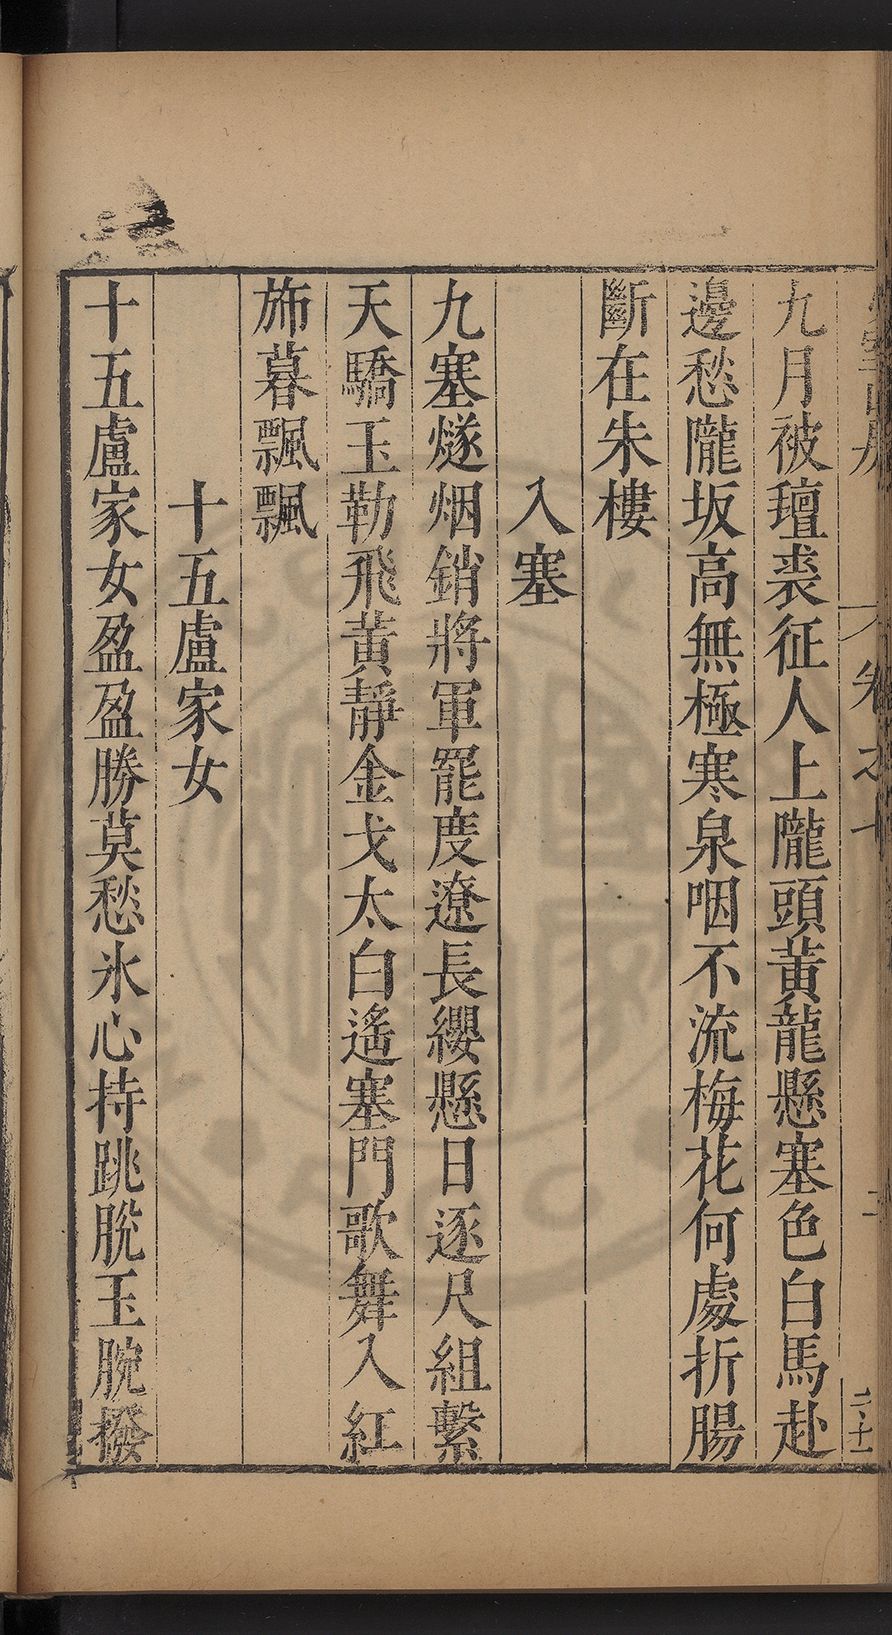 九月被氊裘征人上隴頭黃龍懸塞色白馬赴
邊愁隴坂高無極寒泉咽不流梅花何處折腸
斷在朱樓
入塞
九塞燧烟銷將軍罷度遼長纓懸日逐尺組繫
天驕玉勒飛黃靜金戈太白遙塞門歌舞入紅
斾暮飄飄
十五盧家女
十五盧家女盈盈勝莫愁氷心持跳脫玉腕撥